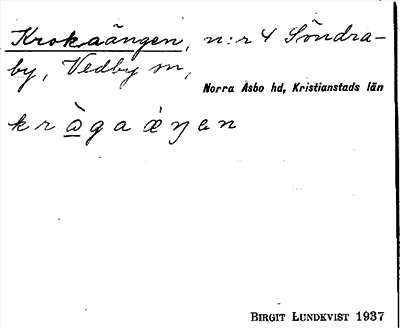 Krokaängen, n:r 4 Söndra-
by, Vedby sn,
Norra Åsbo hd, Kristianstads län
kràgaáŋen
BIRGIT LUNDKVIST 1937